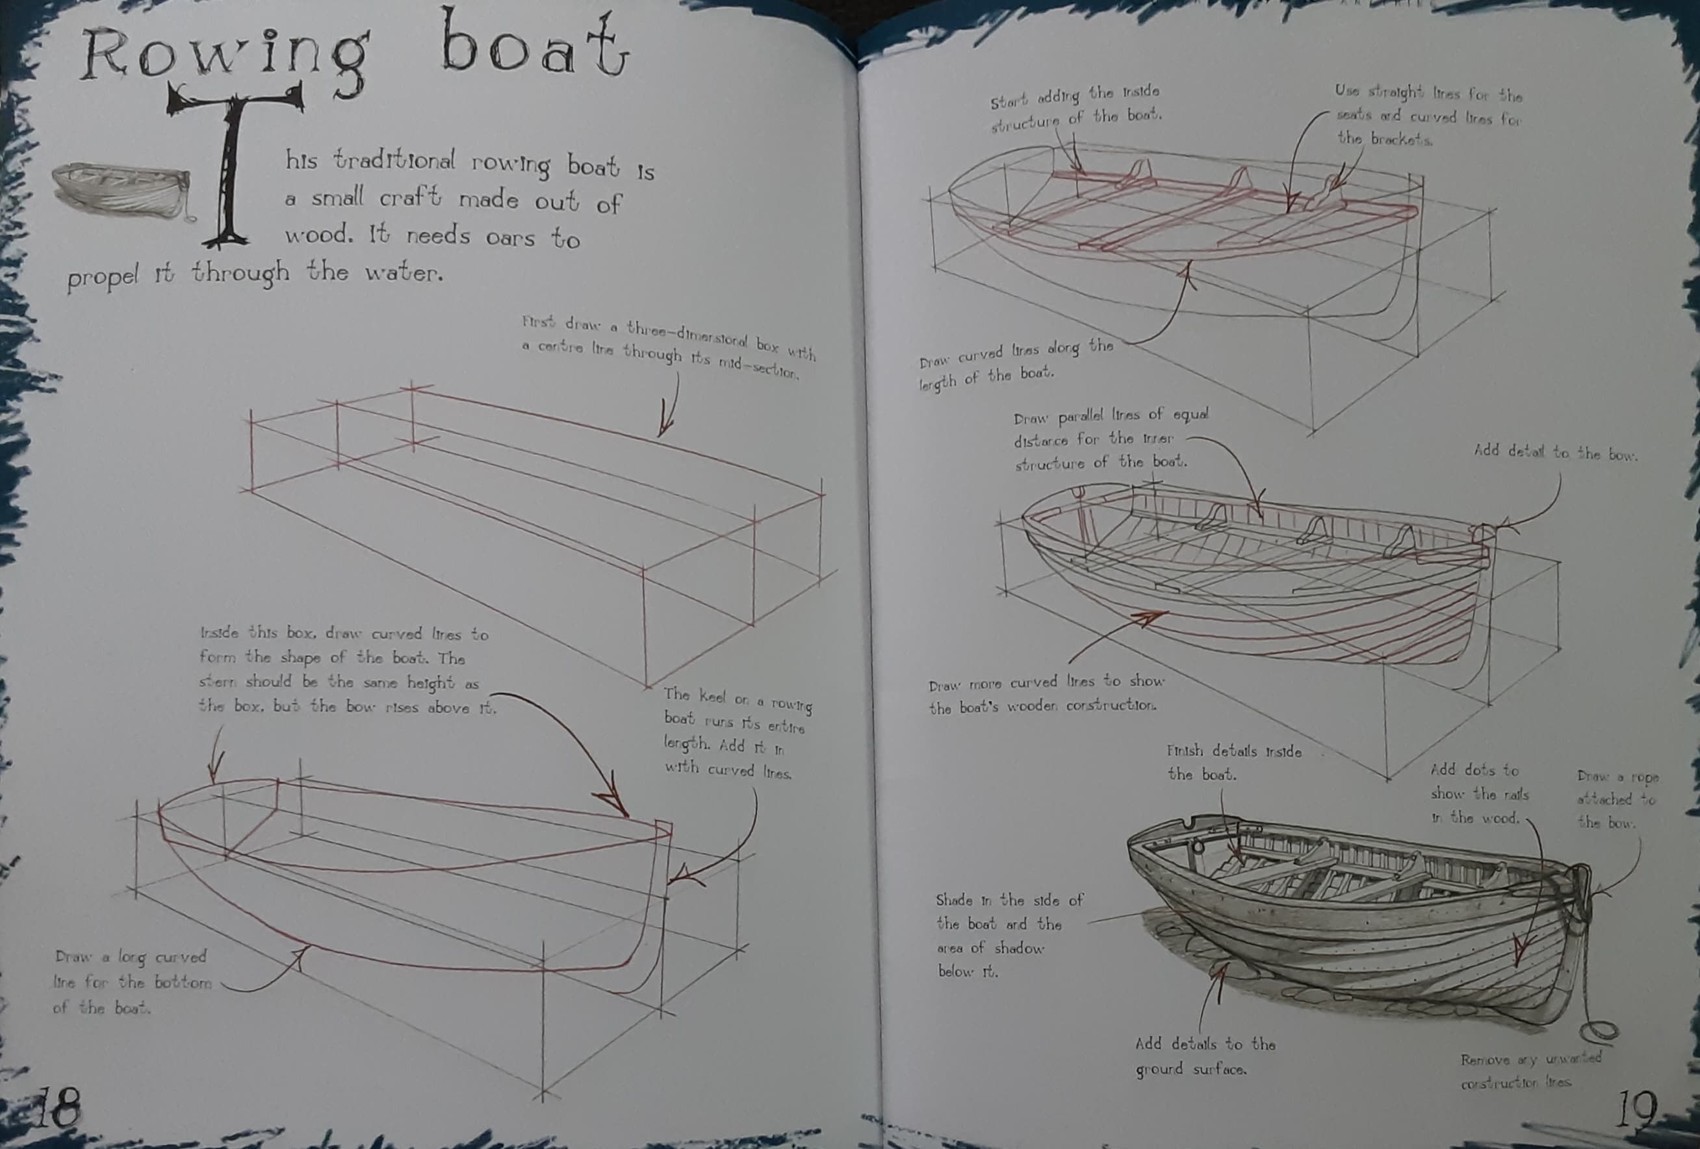 Rowing boat
This traditional rowing boat is
a small craft made out of
wood. It needs oars to
propel it through the water.
First draw a three-dimensional box with
a centre line through its mid-section.
Inside this box, draw curved lines to
form the shape of the boat. The
stern should be the same height as
the box, but the bow rises above it.
The keel on a rowing
boat runs its entire
length. Add it in
with curved lines.
Draw a long curved
line for the bottom
of the boat.
18
Start adding the inside
structure of the boat.
Use straight lines for the
seats and curved lines for
the brackets.
Draw curved lines along the
length of the boat.
Draw parallel lines of equal
distance for the inner
structure of the boat.
Add detail to the bow.
Draw more curved lines to show
the boat's wooden construction.
Finish details inside
the boat.
Add dots to
show the nails
in the wood.
Draw a rope
attached to
the bow.
Shade in the side of
the boat and the
area of shadow
below it.
Add details to the
ground surface.
Remove any unwanted
construction lines
19